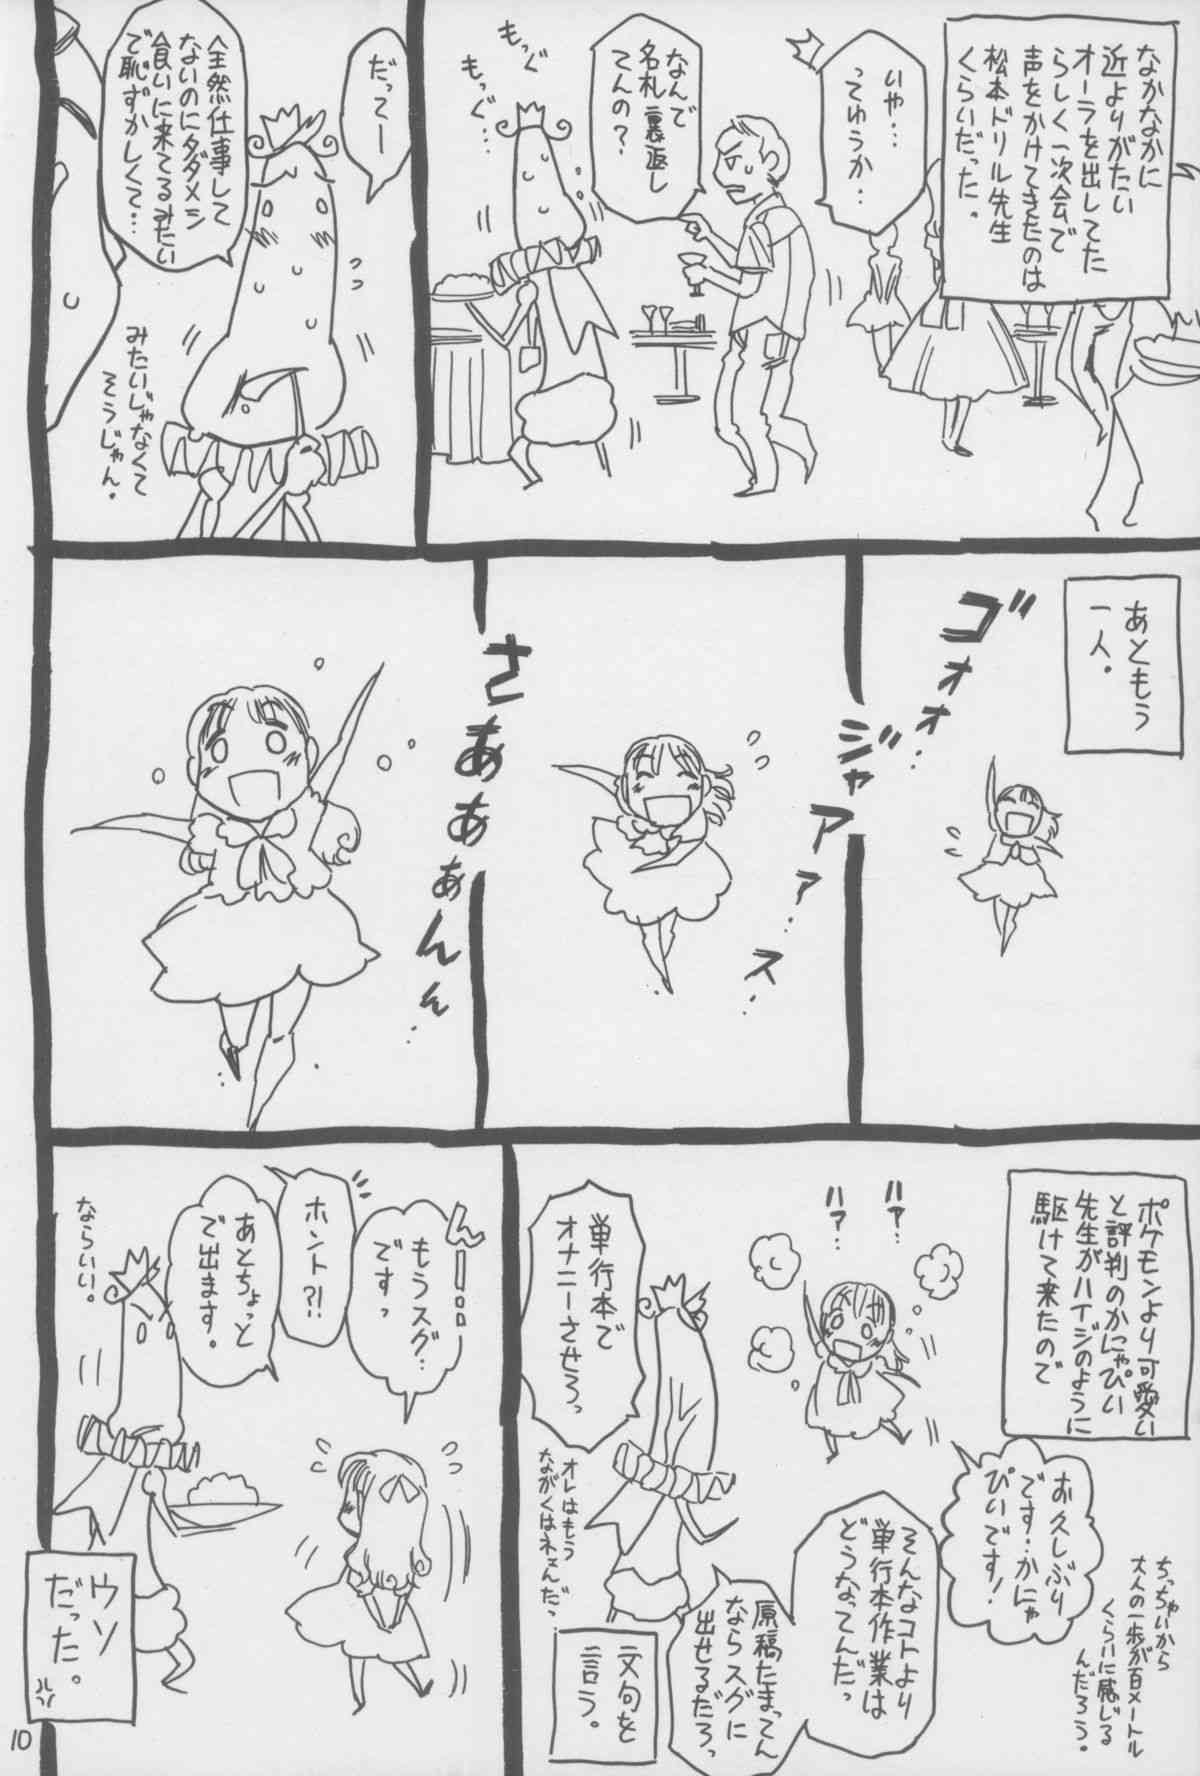 なかなかに
近よりがたい
オーラを出してた
らしく一次会で
声をかけてきたのは
松本ドリル先生
くらいだった。
いや…
ってゆうか…
なんで
名札裏返し
てんの?
もっぐ
もっぐ…
だってー
全然仕事して
ないのにタダメシ
食いに来てるみたい
で恥ずかしくて…
みたいじゃなくて
そうじゃん。
あともう
一人。
ゴォォ…
ジャアアァ…ス…
さあああぁんん…
ポケモンより可愛い
と評判のかにゃぴい
先生がハイジのように
駆けて来たので
ハァ…
ハァ…
お久しぶり
です…かにゃ
ぴいです!
ちっちゃいから
大人の一歩が百メートル
くらいに感じる
んだろう。
そんなコトより
単行本作業は
どうなってんだっ
原稿たまってん
ならスグに
出せるだろっ
単行本で
オナニーさせろっ
オレはもう
ながくはネェんだっ
文句を
言う。
んー…
もうスグ…
ですっ
ホント?!
あとちょっと
で出ます。
ならいい。
ウソ
だった。
10